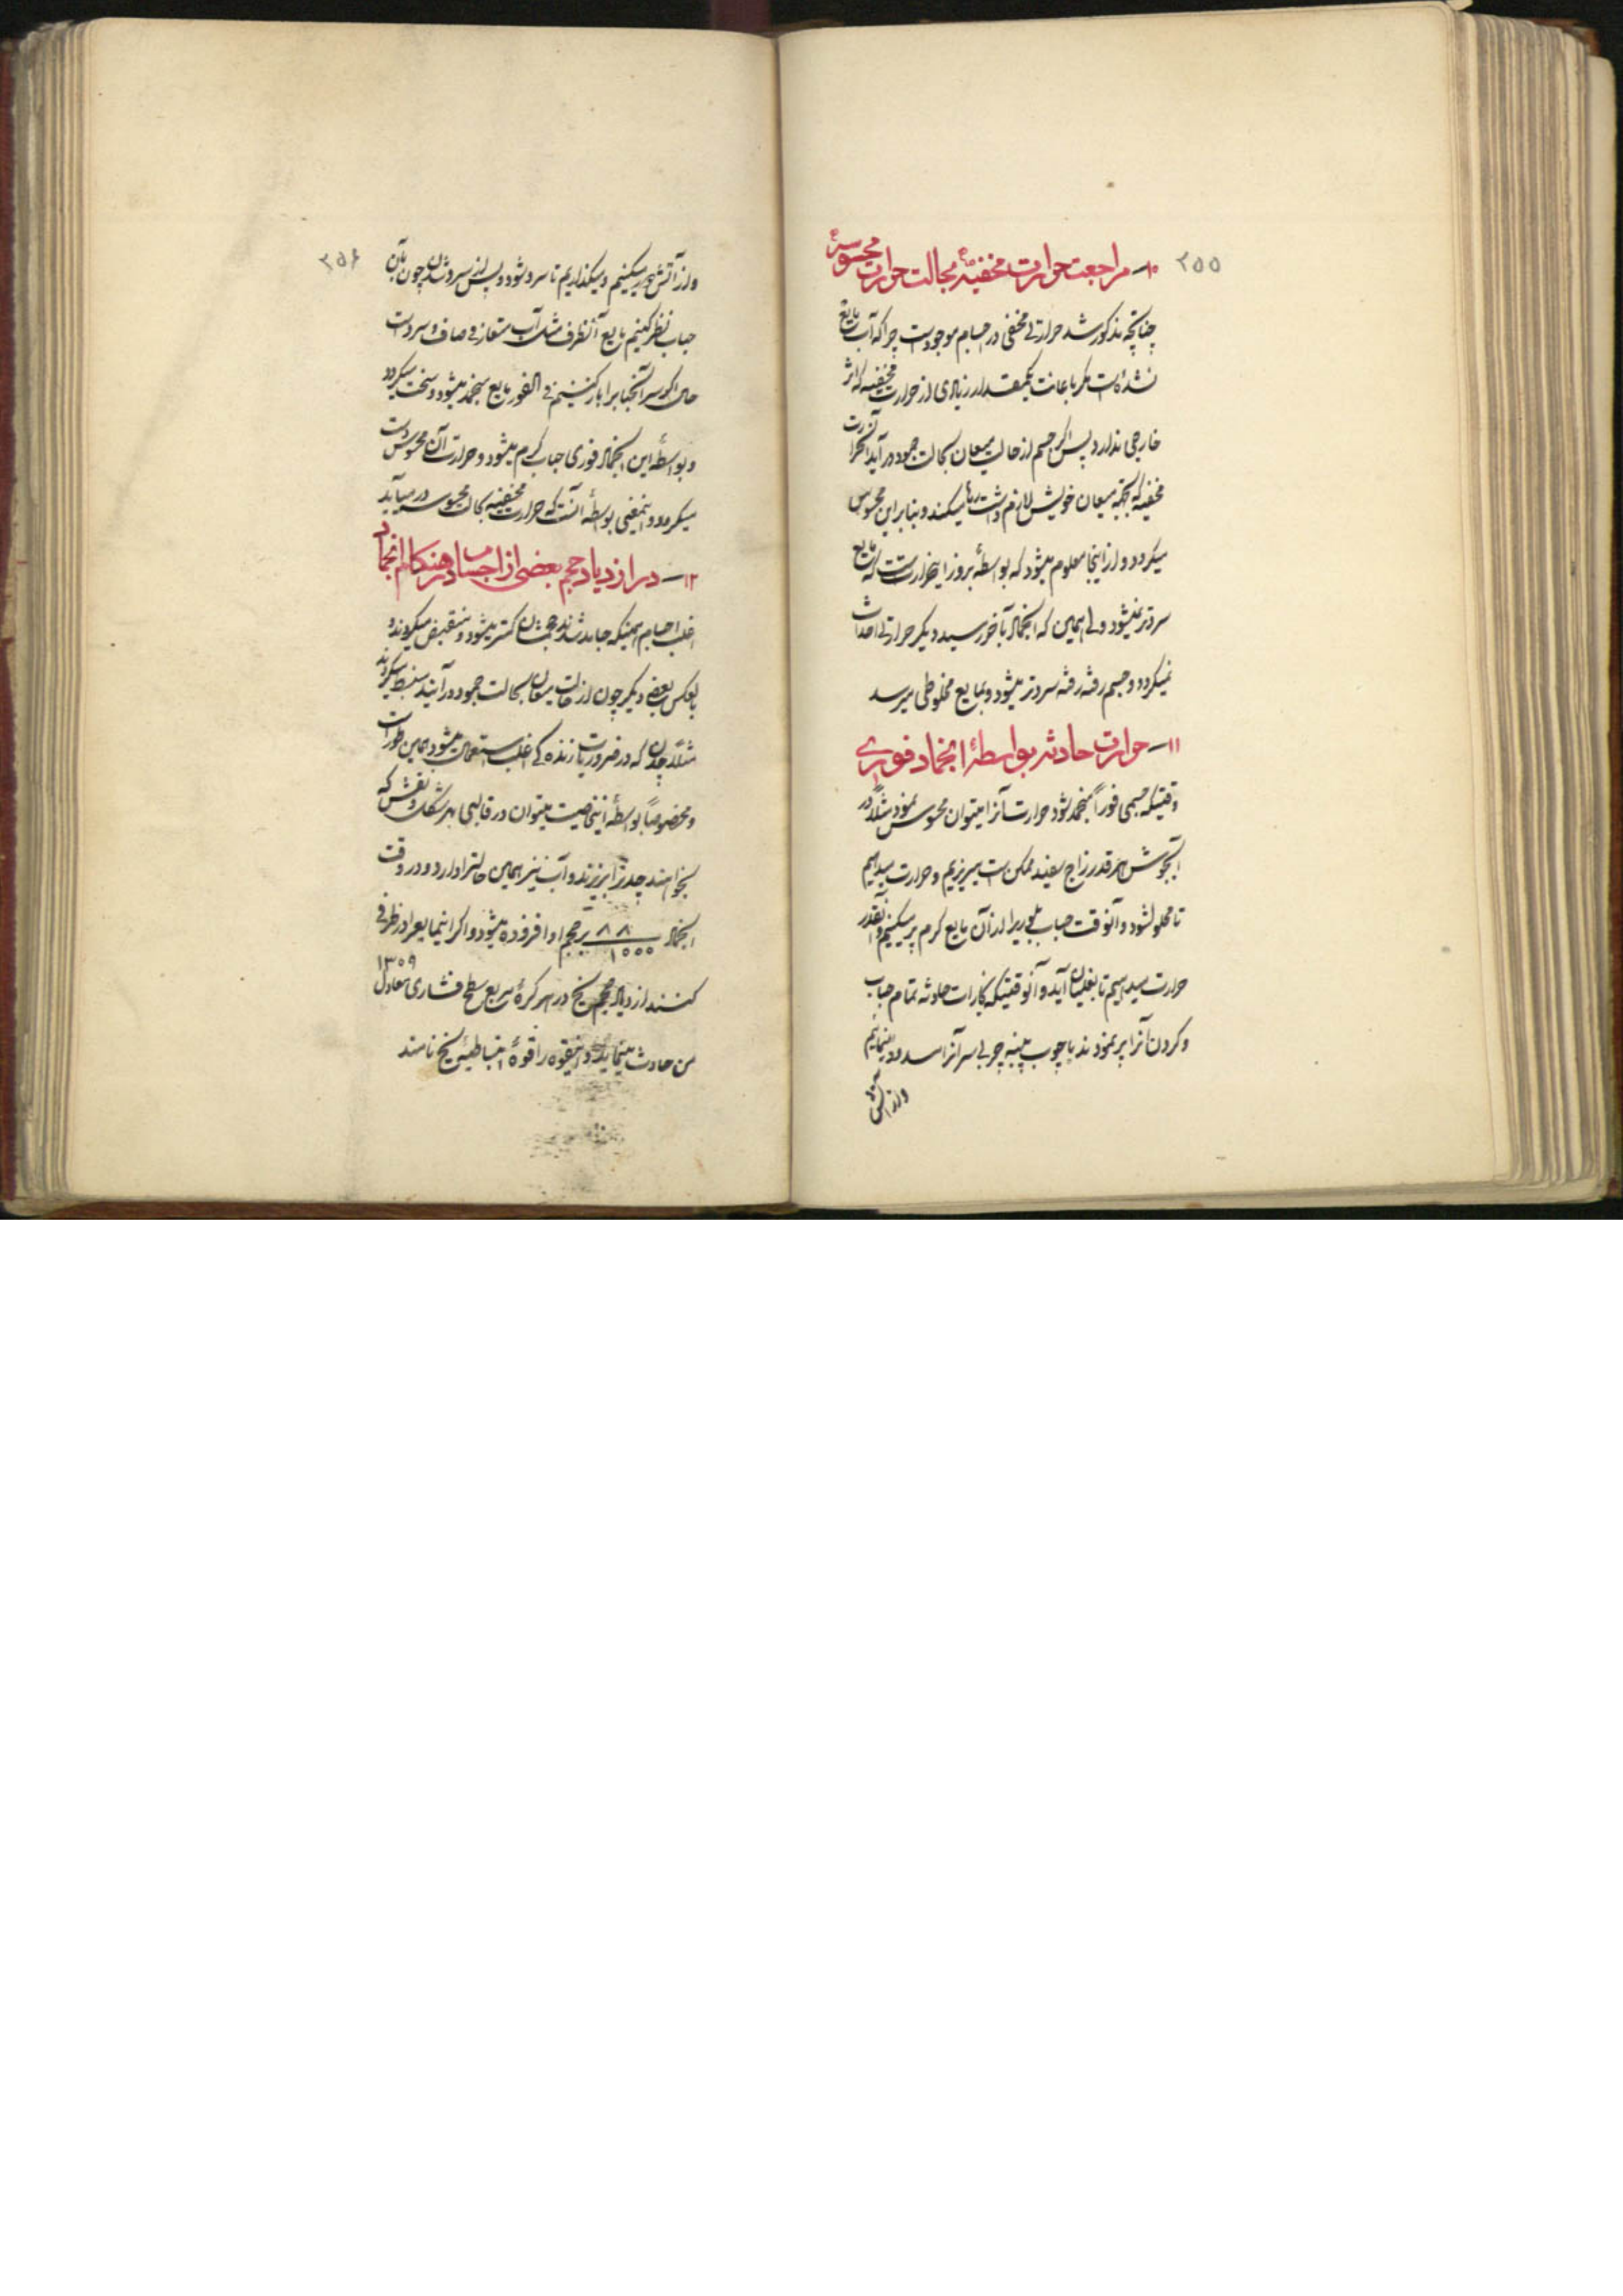 ۲۵۵
۱۰ــ مراجعت حرارت مخفیّه بحالت حرارت محسوسهٔ
چنانچه مذکور شد حرارتی مخفی در اجسام موجودست چرا که آب مایع
نشده‌است مگر باعانت یکمقدار زیادی از حرارت مخفیه که اثر
خارجی ندارد پس اگر جسم از حالت میعان بحالت جمود درآید آنحرارت
مخفیه که بجهة میعان خویش لازم داشت رها میکند و بنابراین محسوس
میگردد و از اینجا معلوم میشود که بواسطهٔ بروز اینحرارتست که مایع
سردتر نمیشود ولی همین که انجماد بآخر رسید دیگر حرارتی احداث
نمیگردد و جسم رفته رفته سردتر میشود و بمایع مخلوطی میرسد
۱۱ــ حرارت حادثه بواسطهٔ انجماد فوری
وقتیکه جسمی فوراً منجمد شود حرارت آنرا میتوان محسوس نمود مثلاً در
آبجوش هرقدر زاج سفید ممکن است میریزیم و حرارت میدهیم
تا محلول شود و آنوقت حباب بلوریرا از آن مایع گرم پر میکنیم و آنقدر
حرارت میدهیم تا بغلیان آید و آنوقتیکه بخارات حادثه تمام حباب
و گردن آنرا پر نمودند با چوب پنبه چوبی سر آنرا مسدود مینمائیم
و از آتش
۲۵۶
و از آتش دور میکنیم و میگذاریم تا سرد شود و پس از سرد شدن چون بآن
حباب نظر کنیم مایع آنظرف مثل آب متعارفی صاف و سرد است
حال اگر سر آنحبابرا باز کنیم فی الفور مایع منجمد میشود و سخت میگردد
و بواسطهٔ این انجماد فوری حباب گرم میشود و حرارت آن محسوس دست
میگردد و اینمعنی بواسطهٔ آنست که حرارت مخفیه بحالت محسوسه درمیآید
۱۲ــ در ازدیاد حجم بعضی از اجسام در هنگام انجماد
اغلب اجسام همینکه جامد شدند حجمشان کمتر میشود و منقبض میگردند و
بالعکس بعضی دیگر چون از حالت میعان بحالت جمود درآیند منبسط میگردند
مثلاً چدن که در ضروریات زنده‌گی اغلب استعمال میشود همین طور است
و مخصوصاً بواسطهٔ اینخاصیت میتوان در قالبی بهر شکل و نقش که
بخواهند چدنرا بریزند و آب نیز همین حالترا دارد و در وقت
انجماد ۸۸/۱۰۰۰ بر حجم او افزوده میشود و اگر اینمایعرا در ظرفی
کنند ازدیاد حجم یخ در هر گرهٔ مربع سطح فشاری معادل ۱۳۵۹
من حادث مینماید و اینقوه را قوهٔ انبساطیهٔ یخ نامند